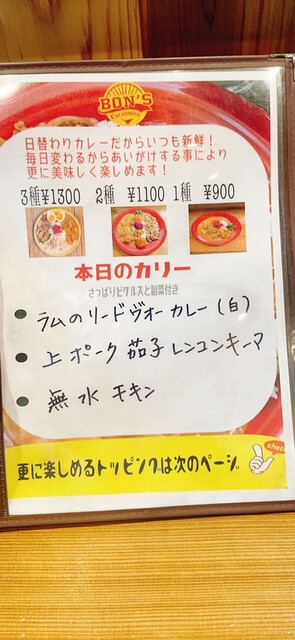 BON'S
日替わりカレーだからいつも新鮮!
毎日変わるからあいがけする事により
更に美味しく楽しめます!
3種¥1300 2種 ¥1100 1種 ¥900
本日のカリー
さっぱりピクルスと副菜付き
● ラムのリードヴォーカレー(白)
● 上ポーク茄子レンコンキーマ
● 無水チキン
更に楽しめるトッピングは次のページ
check